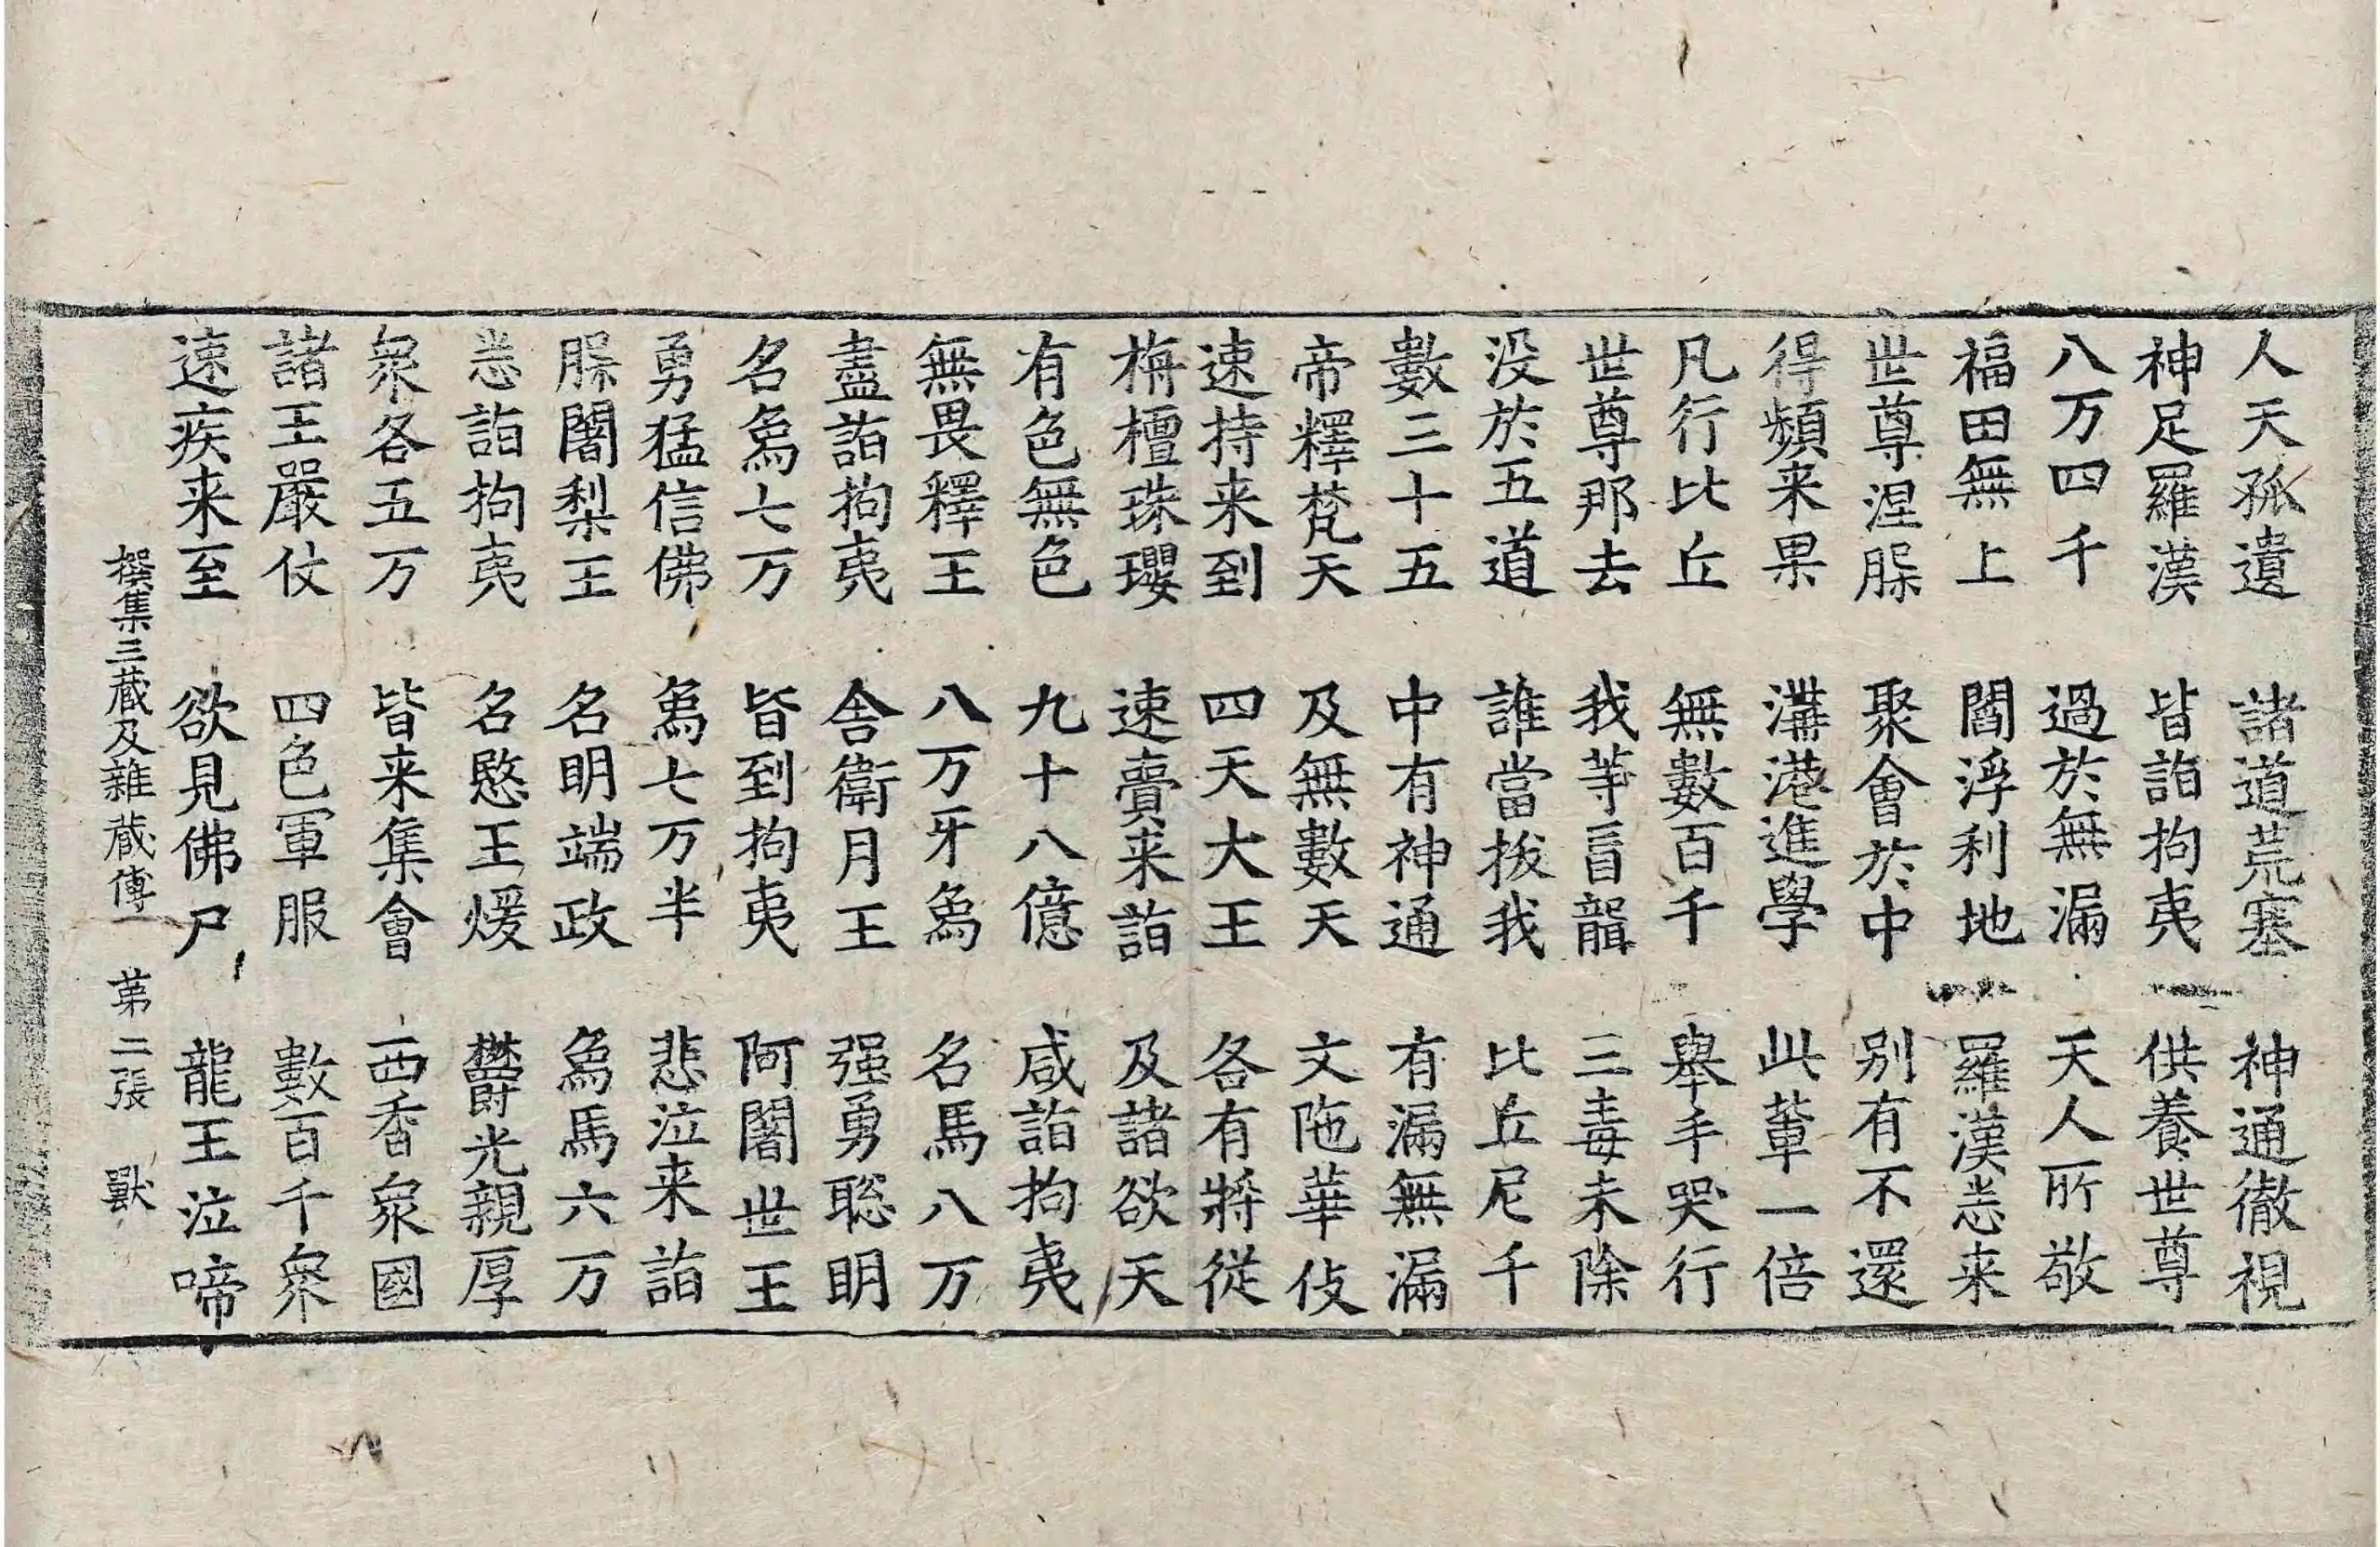 人天孤遺　諸道荒塞　神通徹視
神足羅漢　皆詣拘夷　供養世尊
八万四千　過於無漏　天人所敬
福田無上　閻浮利地　羅漢悉来
世尊涅槃　聚會於中　别有不還
得頻来果　溝港進學　此輩一倍
凡行比丘　無數百千　舉手哭行
世尊那去　我等盲聾　三毒未除
没於五道　誰當拔我　比丘尼千
數三十五　中有神通　有漏無漏
帝釋梵天　及無數天　文陁華伎
速持来到　四天大王　各有將從
栴檀珠瓔　速賷来詣　及諸欲天
有色無色　九十八億　咸詣拘夷
無畏釋王　八万牙象　名馬八万
盡詣拘夷　舎衛月王　强勇聡明
名象七万　皆到拘夷　阿闍世王
勇猛信佛　象七万半　悲泣来詣
脲闍梨王　名明端政　象馬六万
悉詣拘夷　名愍王煖　欝光親厚
衆各五万　皆来集會　西香衆國
諸王嚴仗　四色軍服　數百千衆
速疾来至　欲見佛尸　龍王泣啼
撰集三藏及雜藏傳　苐二張　獸